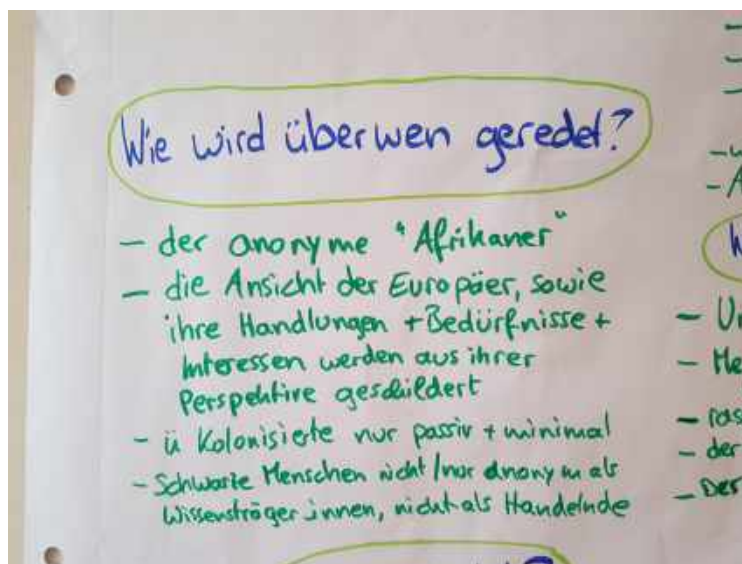 Wie wird über wen geredet?
- der anonyme "Afrikaner"
- die Ansicht der Europäer, sowie
ihre Handlungen + Bedürfnisse +
Interessen werden aus ihrer
Perspektive geschildert
- ü Kolonisierte nur passiv + minimal
- Schwarze Menschen nicht/nur anonym als
Wissensträger_innen, nicht als Handelnde
- der
- Der